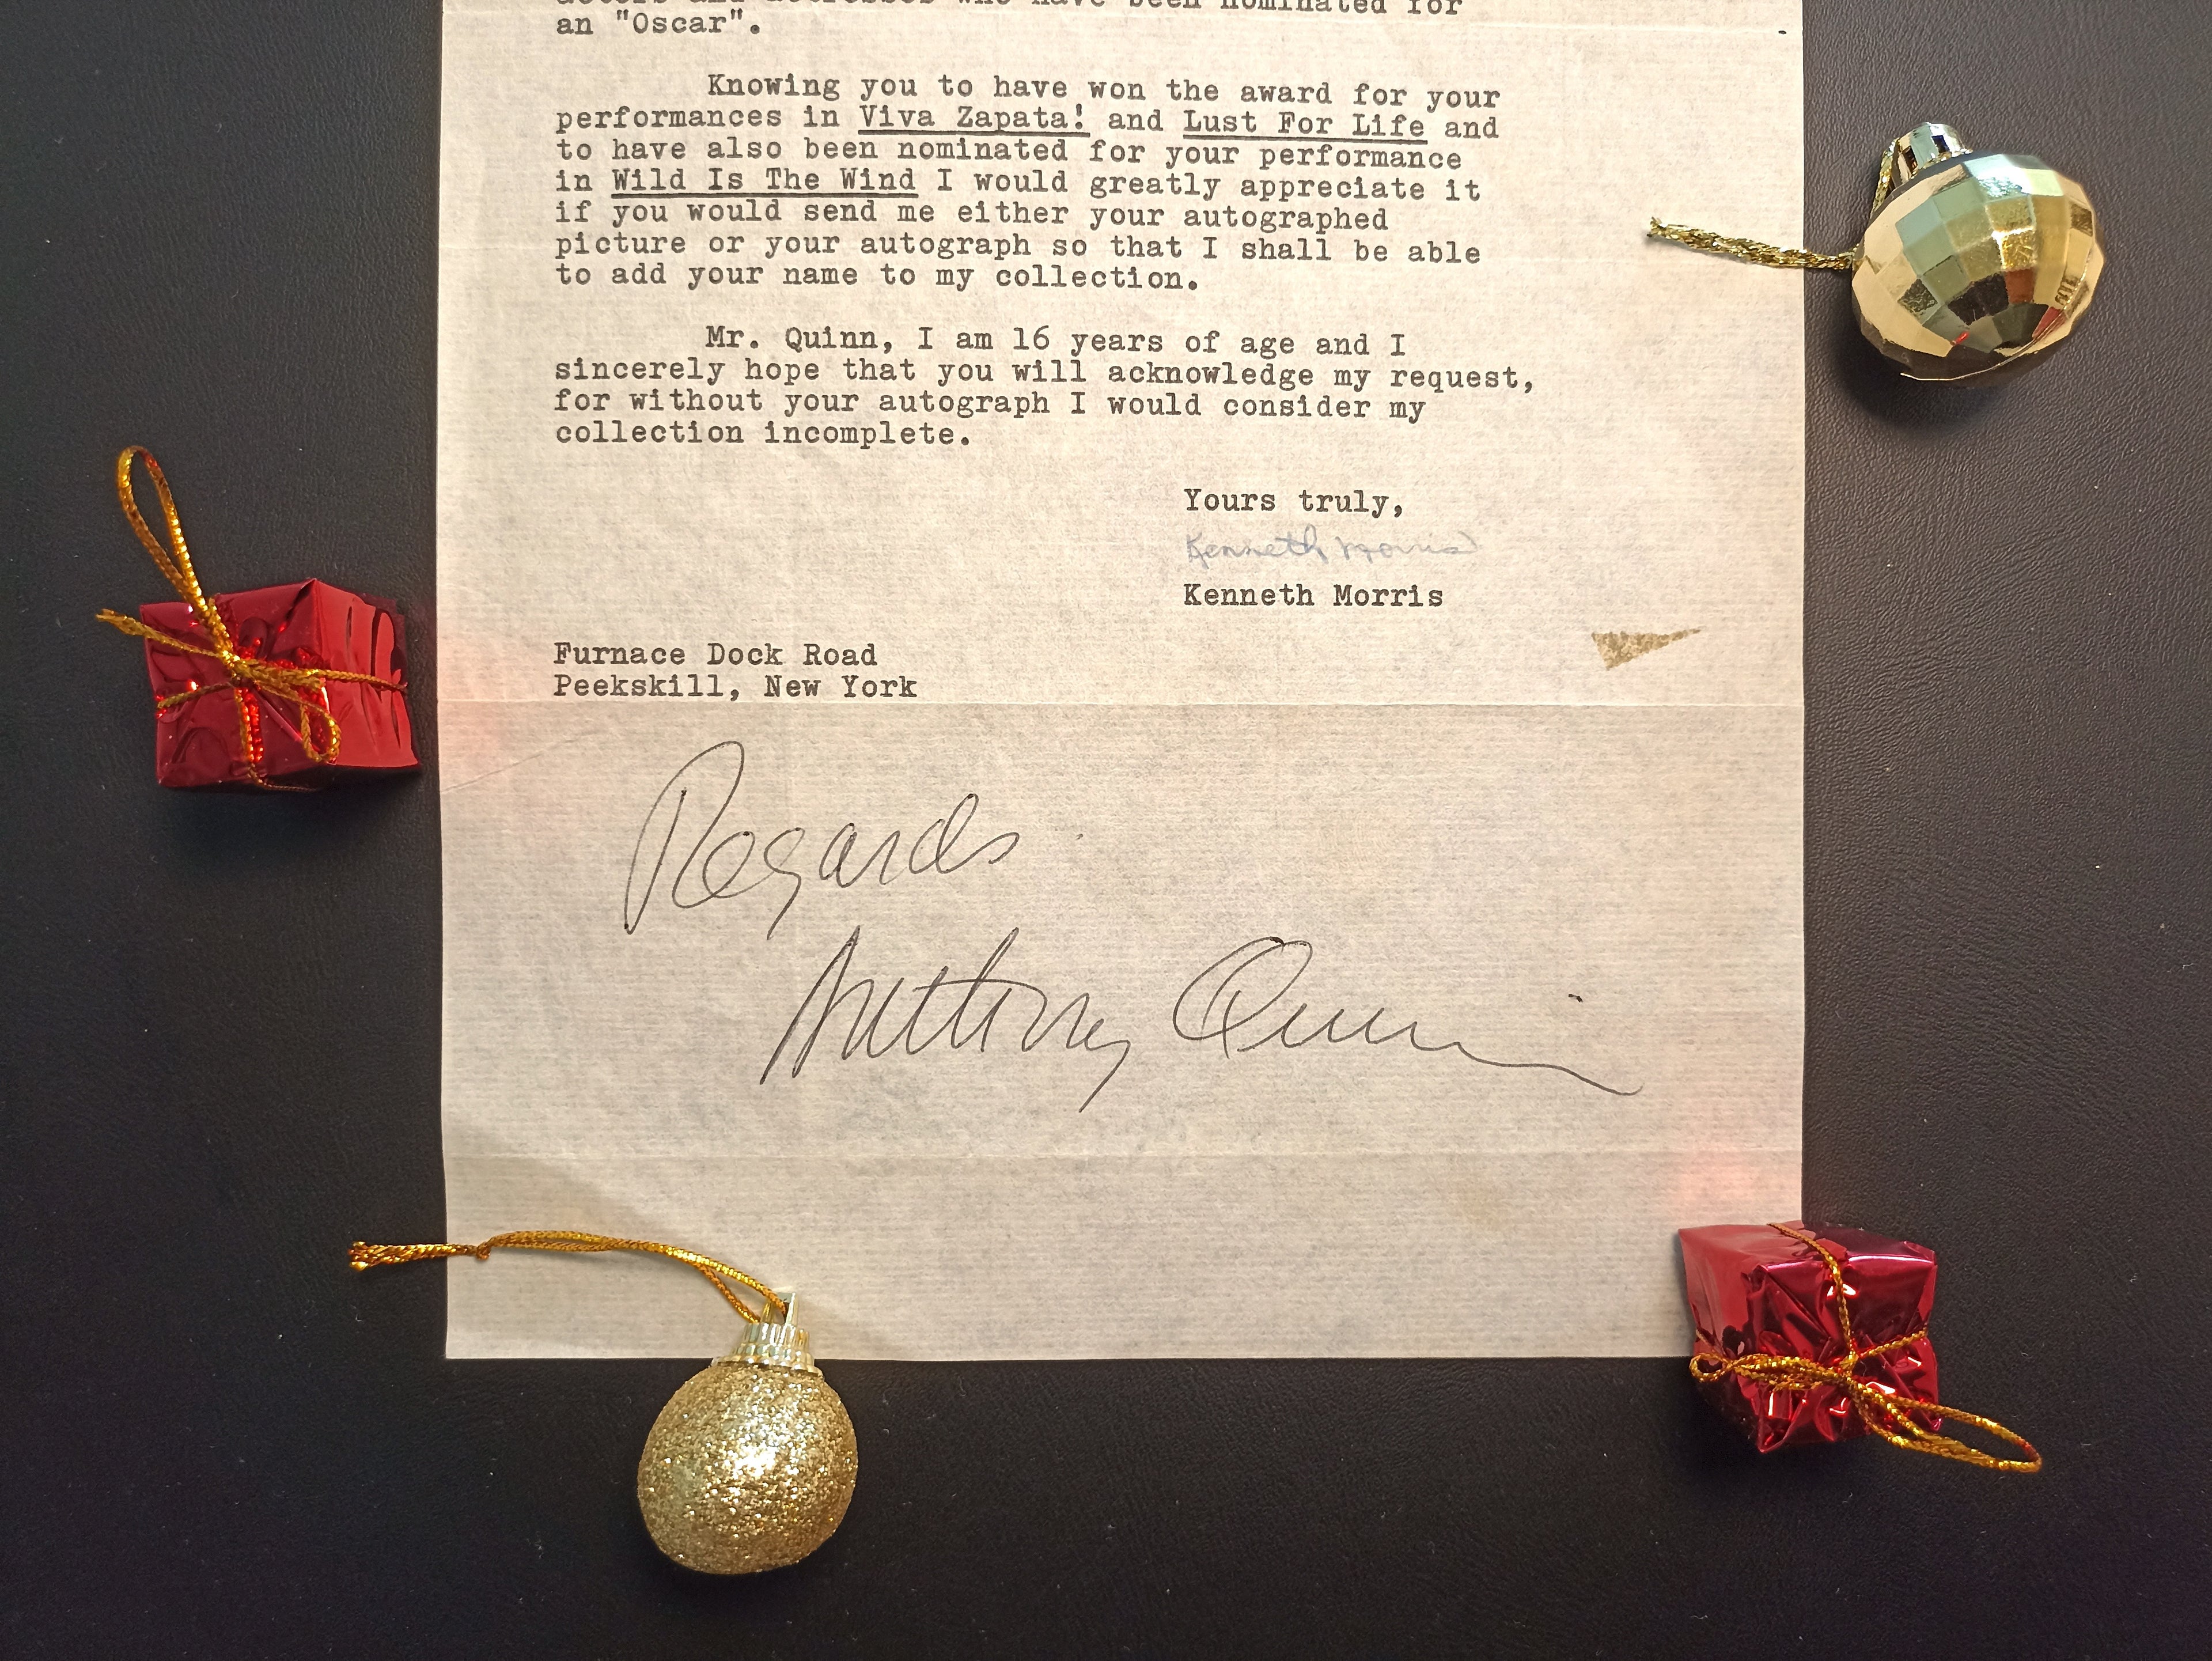 actors and actresses who have been nominated for
an "Oscar".
Knowing you to have won the award for your
performances in Viva Zapata! and Lust For Life and
to have also been nominated for your performance
in Wild Is The Wind I would greatly appreciate it
if you would send me either your autographed
picture or your autograph so that I shall be able
to add your name to my collection.
Mr. Quinn, I am 16 years of age and I
sincerely hope that you will acknowledge my request,
for without your autograph I would consider my
collection incomplete.
Yours truly,
Kenneth Morris
Kenneth Morris
Furnace Dock Road
Peekskill, New York
Regards
Anthony Quinn